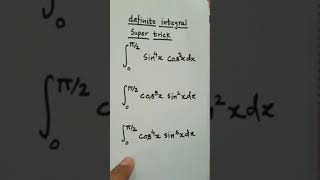 definite integral
Super trick
∫₀^π/2 Sin⁴x cos³x dx
∫₀^π/2 cos⁵x sin²x dx
∫₀^π/2 cos⁴x sin⁵x dx